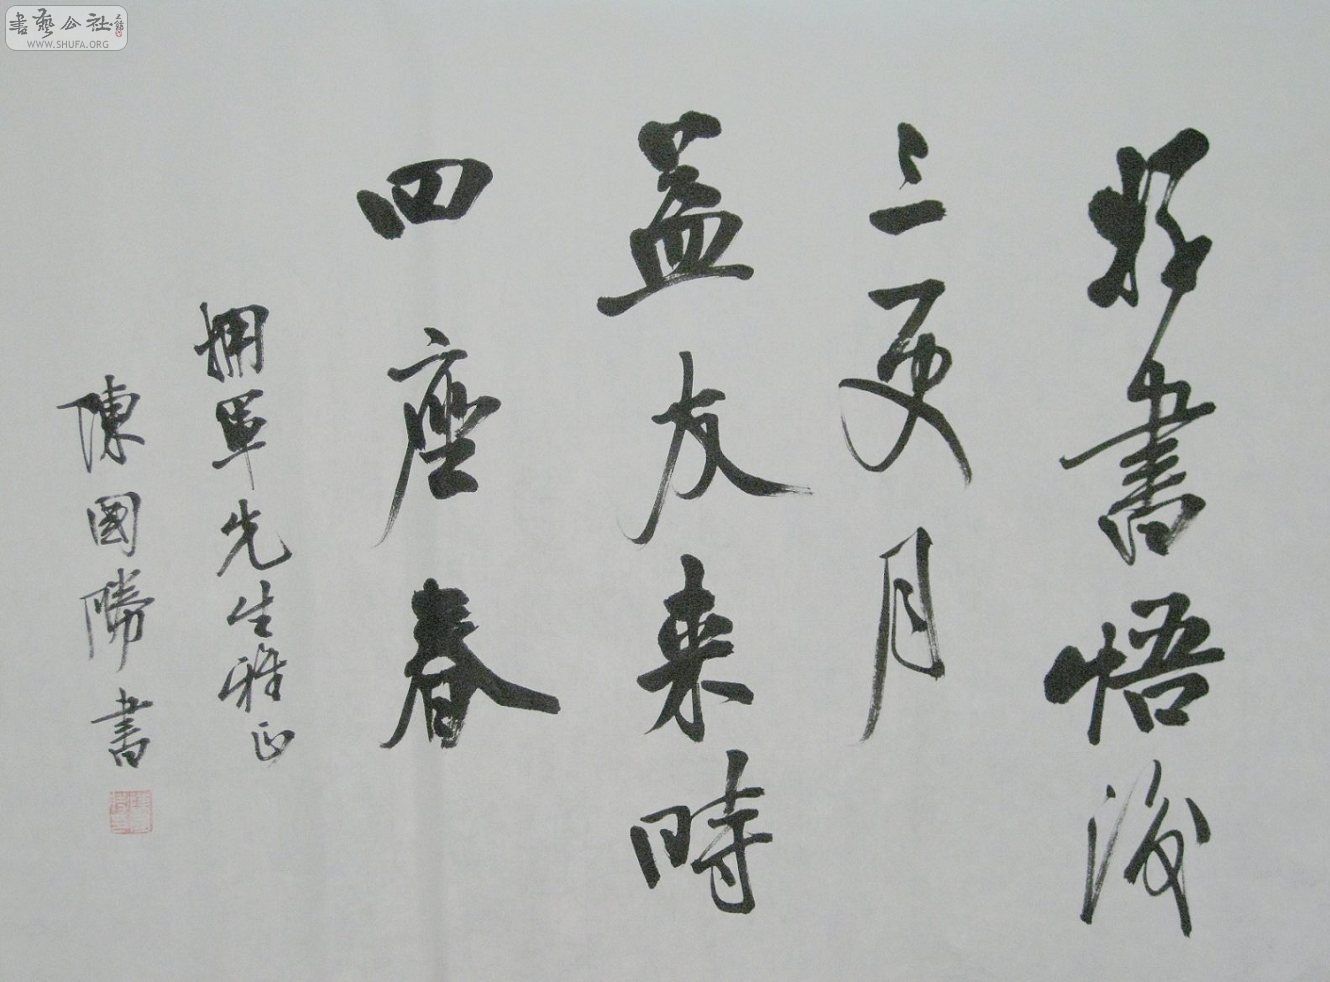 好書悟後
三更月
益友来時
四座春
擁軍先生雅正
陳國勝書
書藝公社
WWW.SHUFA.ORG